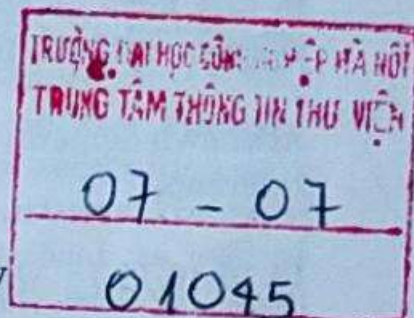 TRƯỜNG ĐẠI HỌC CÔNG NGHIỆP HÀ NỘI
TRUNG TÂM THÔNG TIN THƯ VIỆN
07 - 07
01045